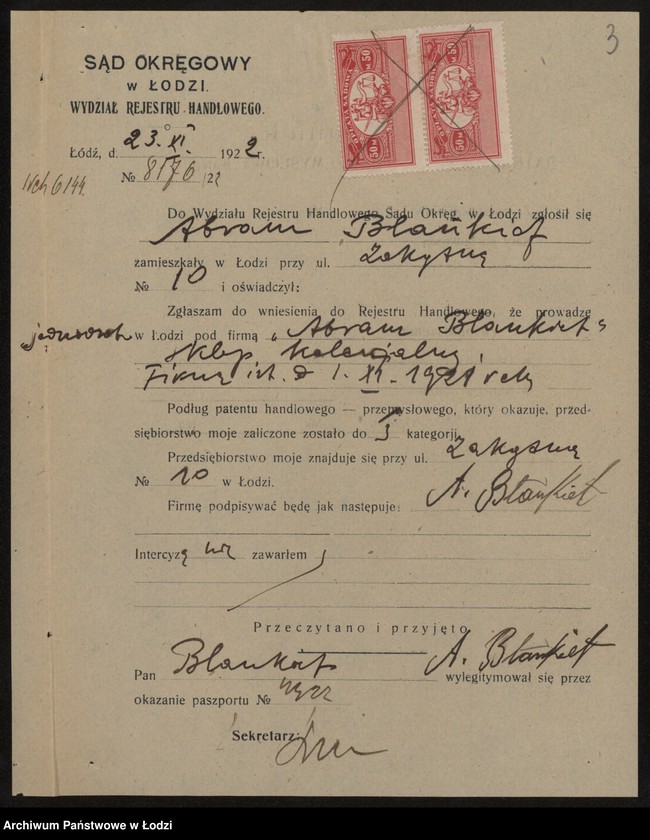 3
SĄD OKRĘGOWY
w ŁODZI.
WYDZIAŁ REJESTRU HANDLOWEGO.
Łódź, d. 23. XI. 1922 r.
№ 8176/22
Do Wydziału Rejestru Handlowego Sądu Okręg. w Łodzi zgłosił się
Abram Blankiet
zamieszkały w Łodzi przy ul. Zakątną
№ 10 i oświadczył:
Zgłaszam do wniesienia do Rejestru Handlowego, że prowadzę
w Łodzi pod firmą „Abram Blankiet"
sklep kolonialny.
Firma ist. od 1. XI. 1921 roku
Podług patentu handlowego — przemysłowego, który okazuje, przed-
siębiorstwo moje zaliczone zostało do kategorji.
Przedsiębiorstwo moje znajduje się przy ul. Zakątną
№ 10 w Łodzi.
Firmę podpisywać będę jak następuje: A. Blankiet
Intercyzą nie zawarłem
Przeczytano i przyjęto
A. Blankiet
Pan Blankiet wylegitymował się przez
okazanie paszportu №
Sekretarz:
Archiwum Państwowe w Łodzi